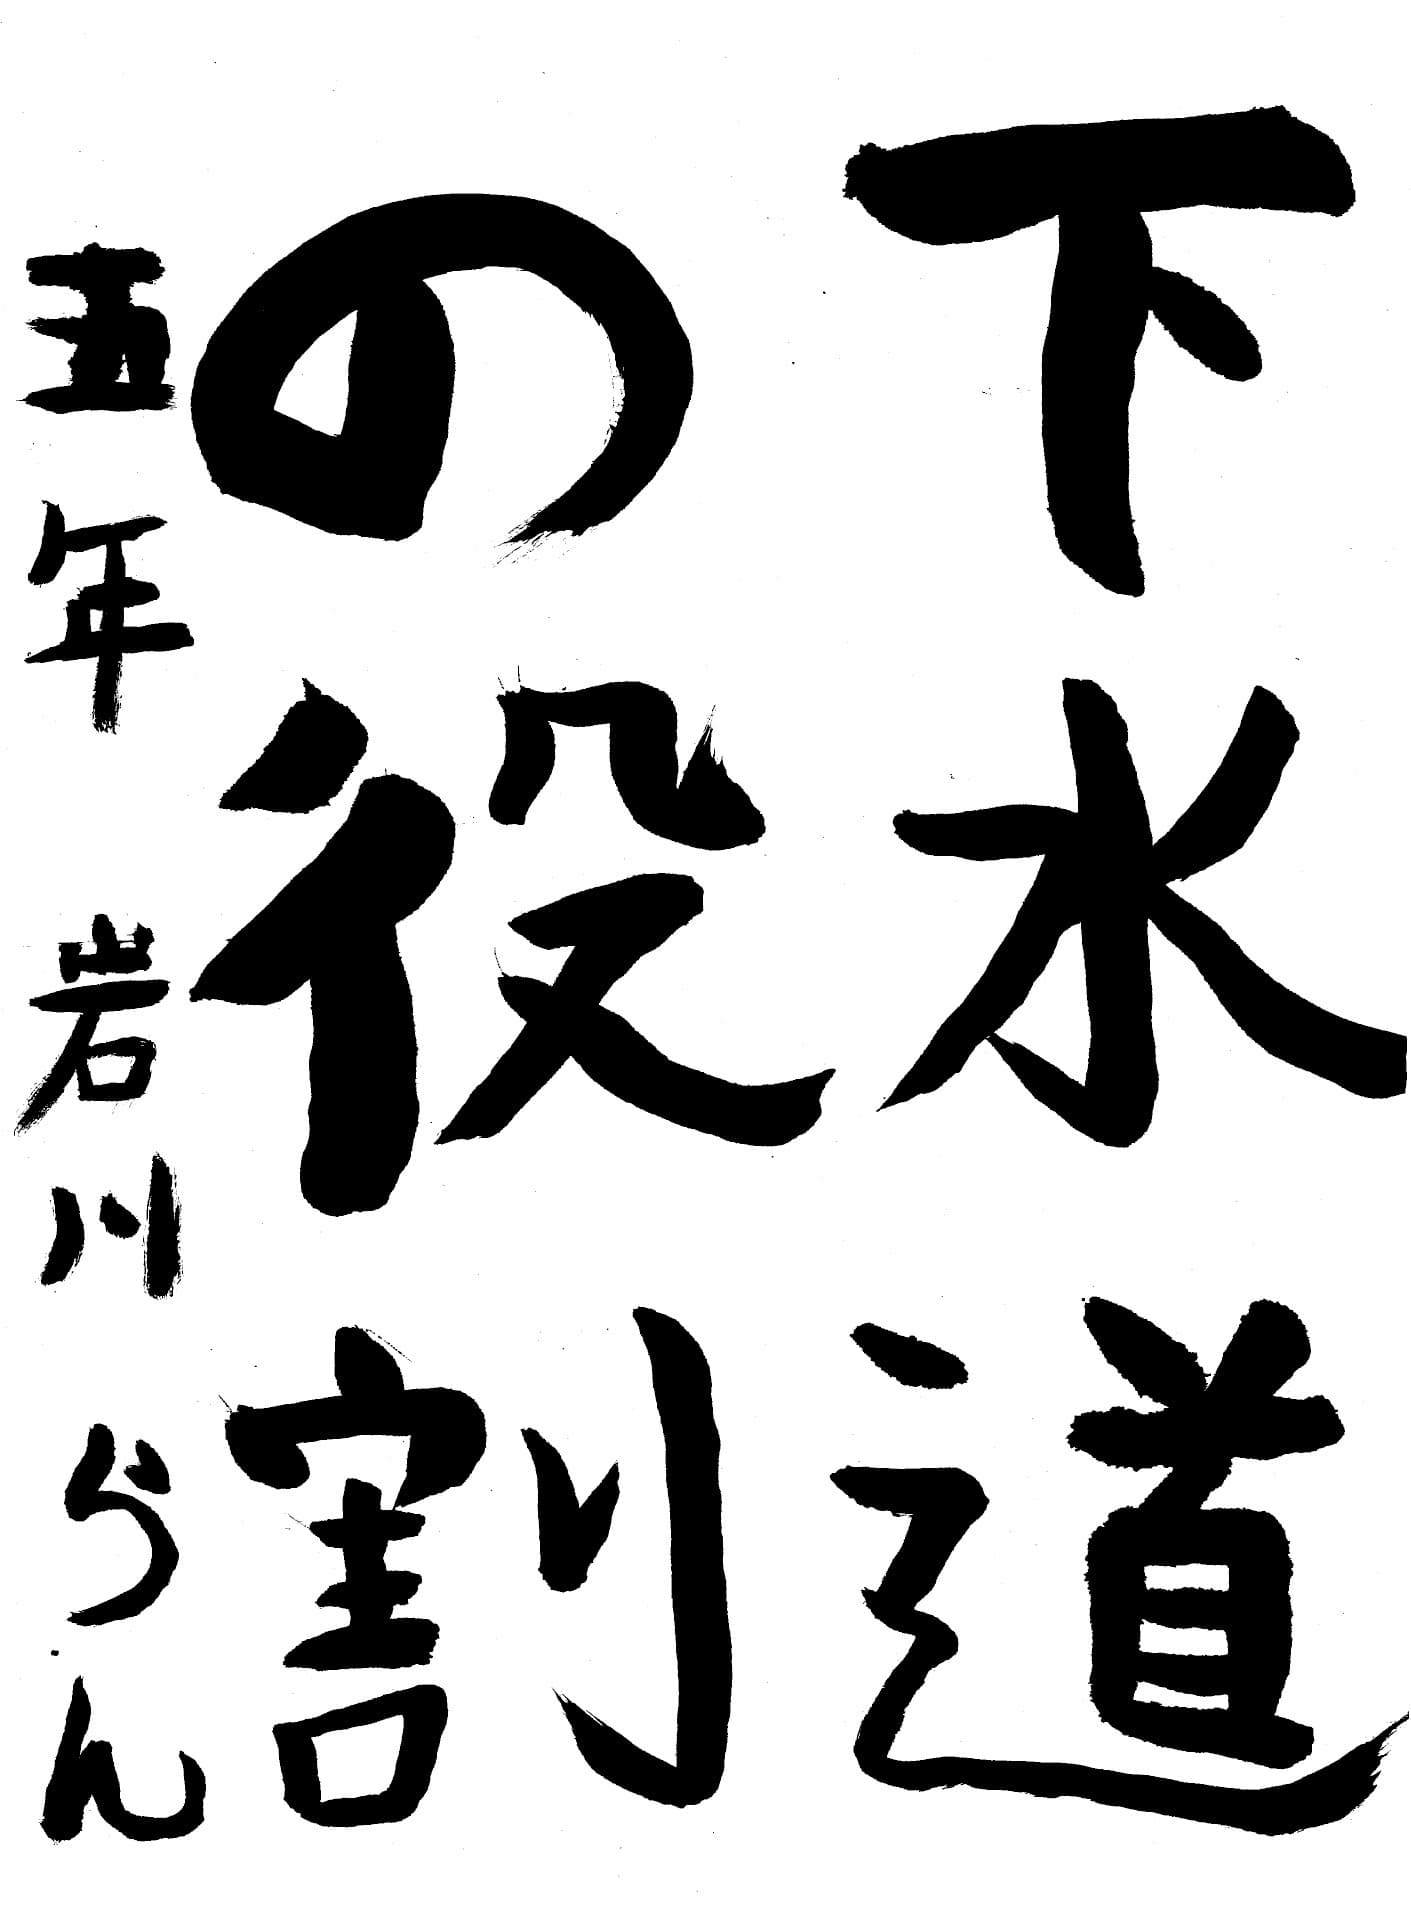 下水道
の役割
五年 岩川 らん